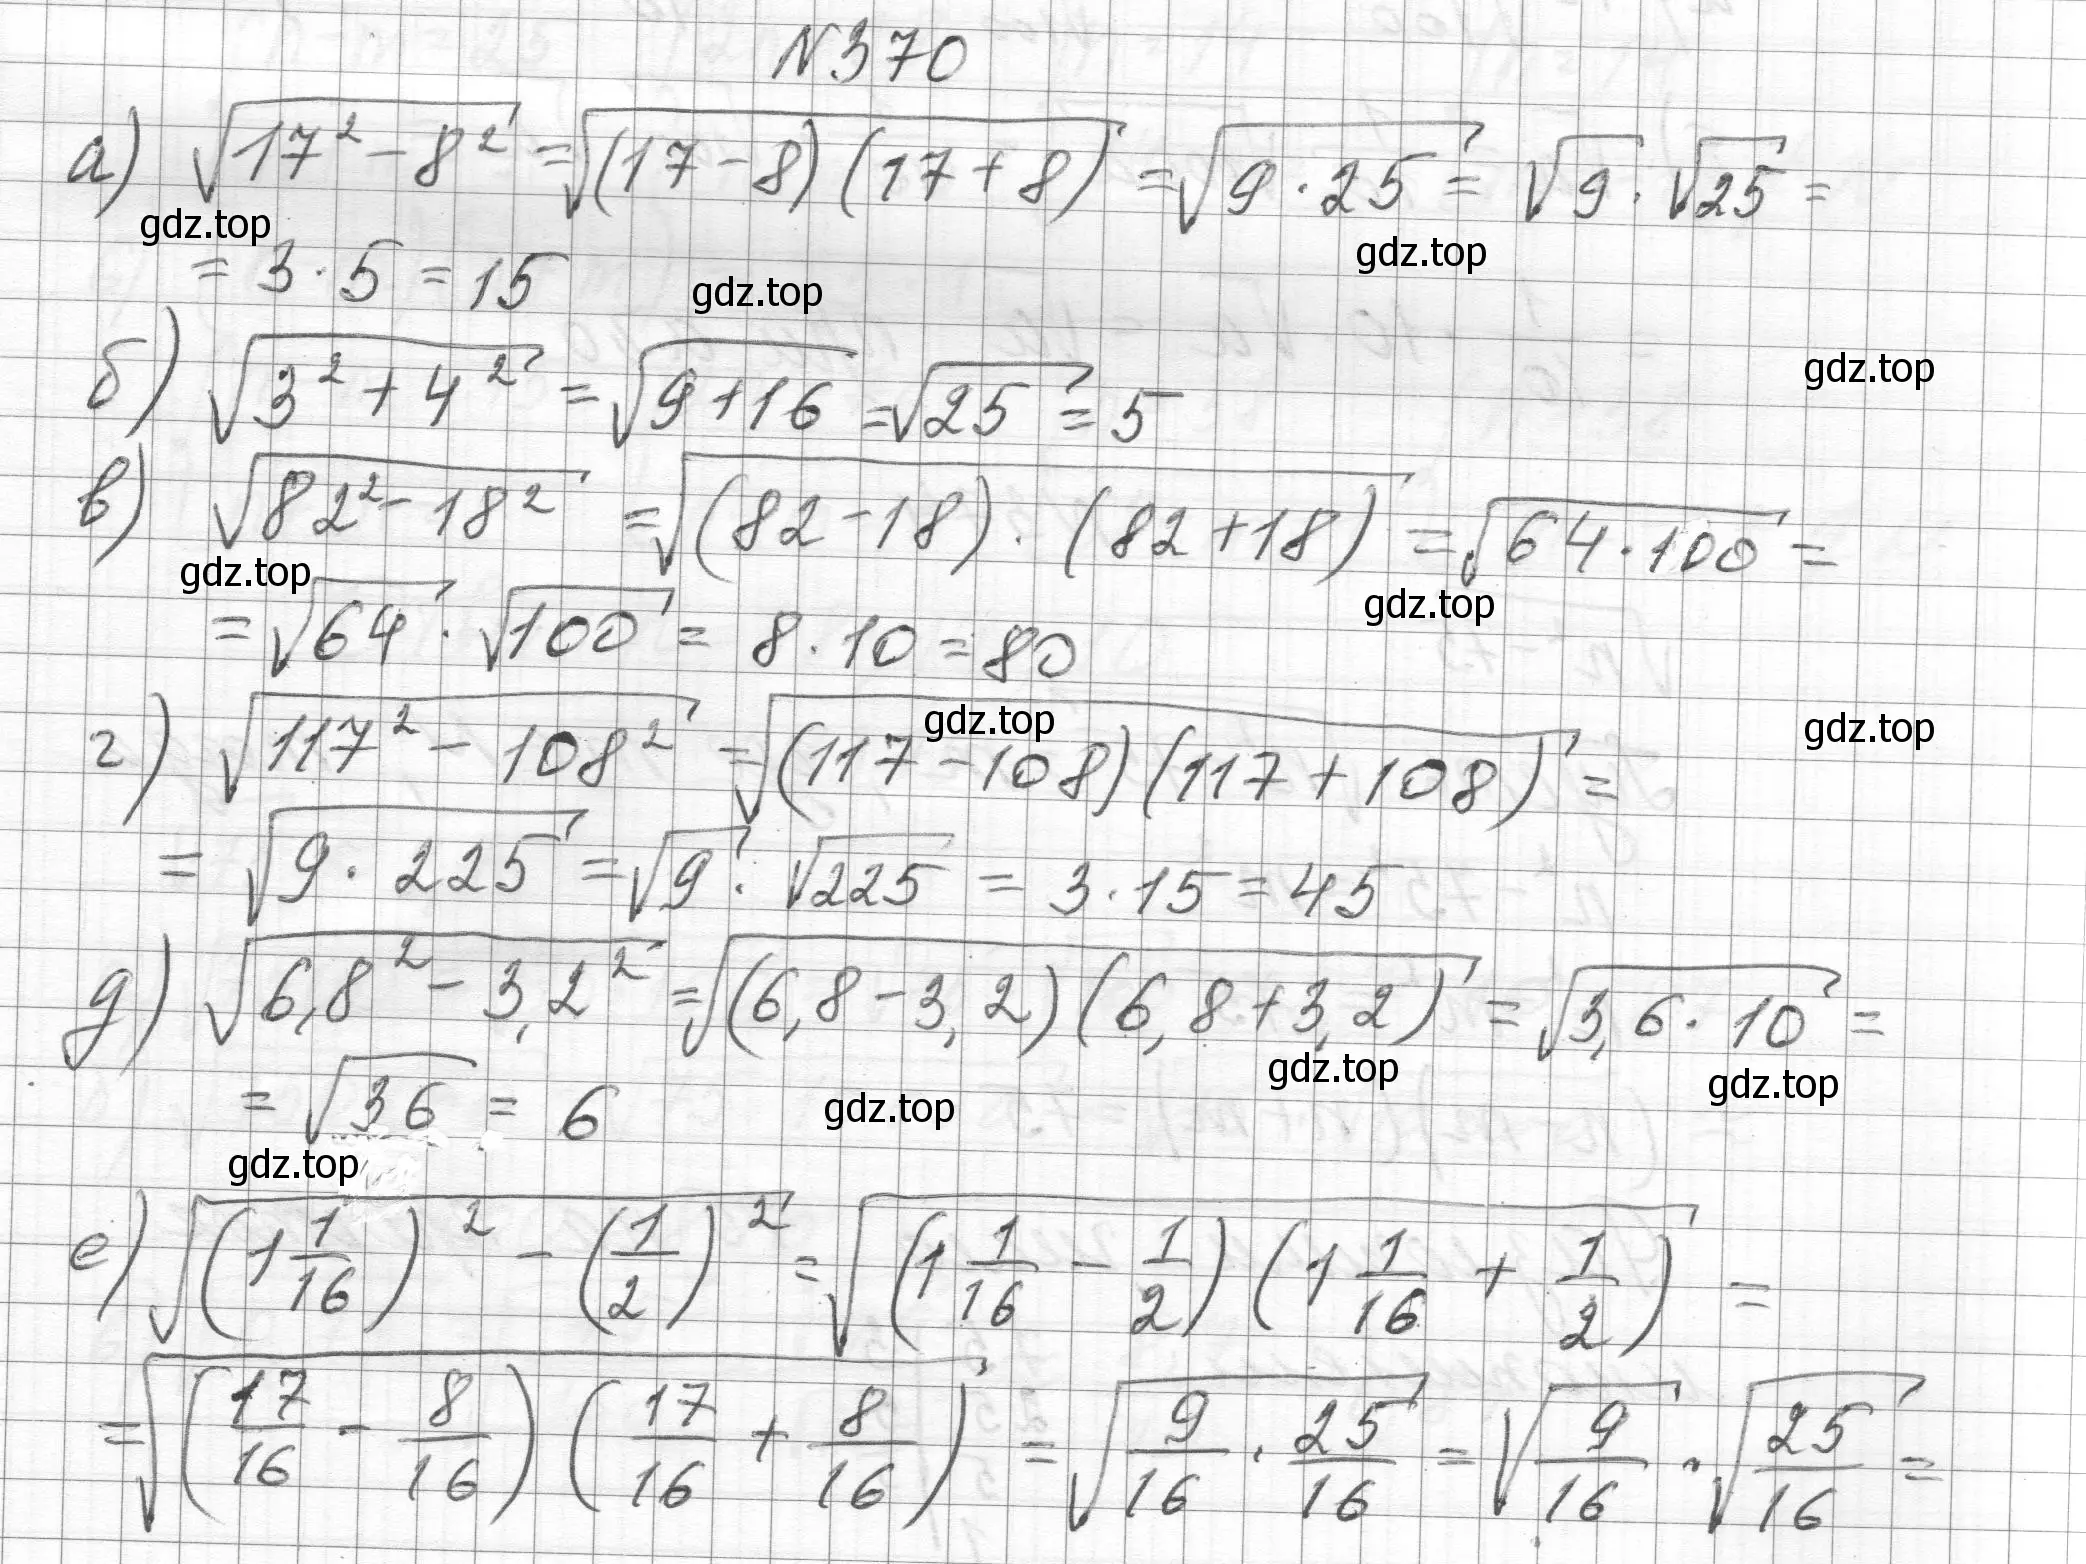 N370
а) √(17² - 8²) = √((17 - 8)(17 + 8)) = √(9 · 25) = √9 · √25 =
gdz.top
gdz.top
= 3 · 5 = 15
gdz.top
б) √(3² + 4²) = √(9 + 16) = √25 = 5
gdz.top
в) √(82² - 18²) = √((82 - 18) · (82 + 18)) = √(64 · 100) =
gdz.top
gdz.top
= √64 · √100 = 8 · 10 = 80
gdz.top
gdz.top
г) √(117² - 108²) = √((117 - 108)(117 + 108)) =
= √(9 · 225) = √9 · √225 = 3 · 15 = 45
д) √(6,8² - 3,2²) = √((6,8 - 3,2)(6,8 + 3,2)) = √(3,6 · 10) =
gdz.top
gdz.top
= √36 = 6
gdz.top
gdz.top
е) √((1 1/16)² - (1/2)²) = √((1 1/16 - 1/2)(1 1/16 + 1/2)) =
= √((17/16 - 8/16)(17/16 + 8/16)) = √(9/16 · 25/16) = √(9/16) · √(25/16) =